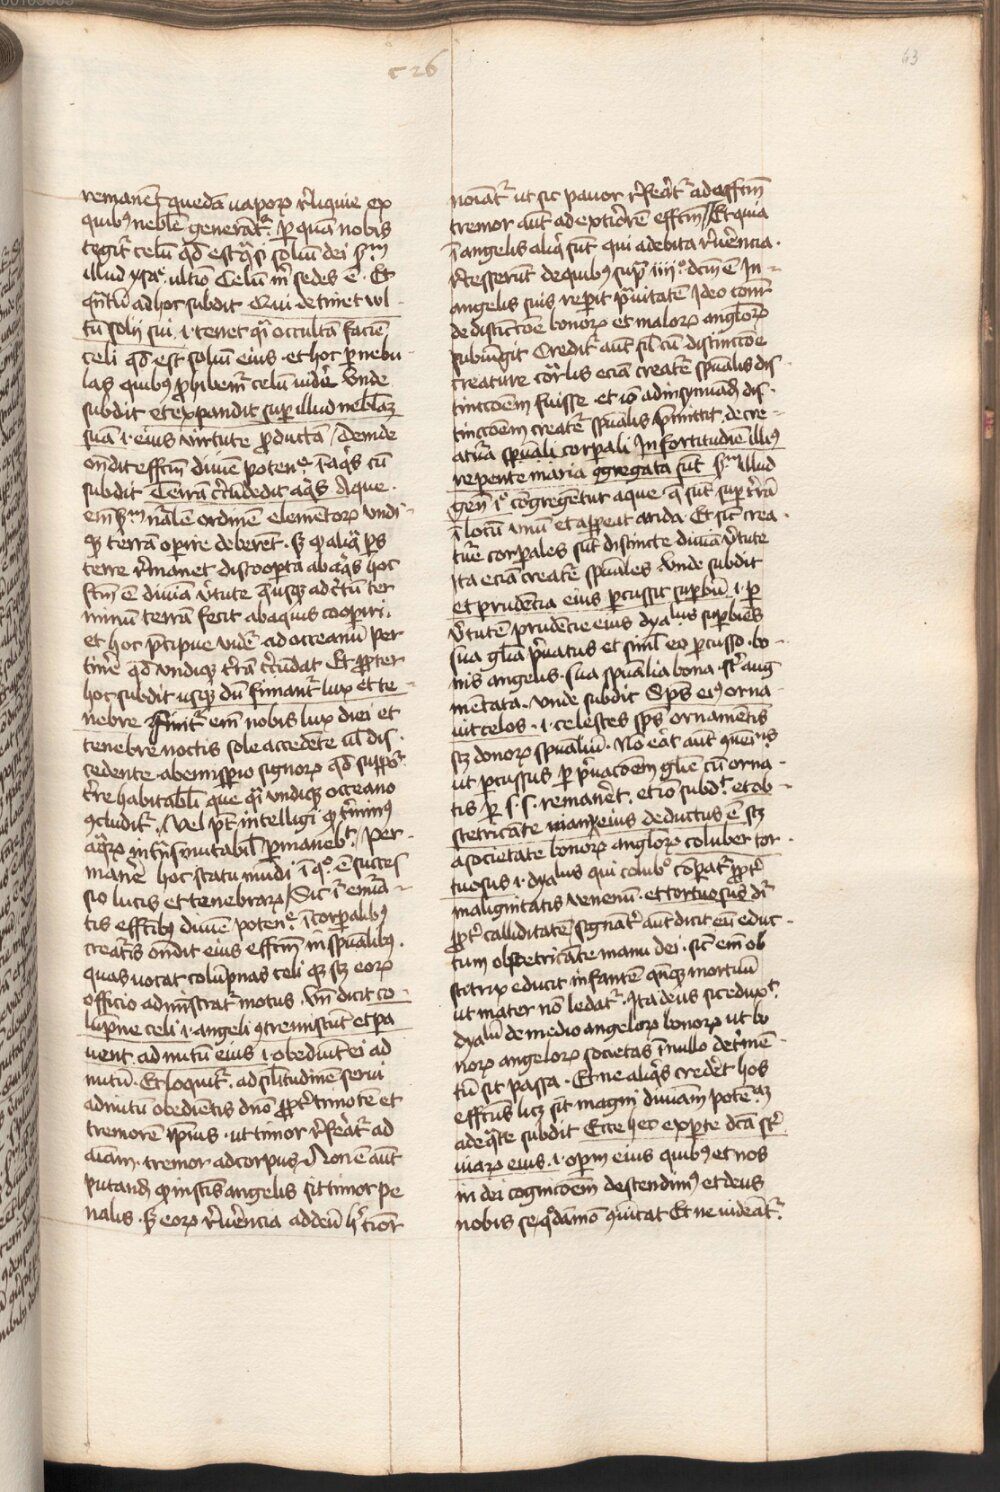 c 26
63
remanent quedam uapor&#x A75D; reliquie ex
quib&#x A770; neble generant&#x2E; p quam nobis
tegit&#x2E; celu qd est q&#x2E;si soliu dei
illud ysa&#x2E; ultio Celu m sedes e&#x2E; Et
qntu ad hoc subdit Qui detinet vl
tu solij sui i tenet q&#x2E;si occulta facie
celi qd est soliu eius et hoc p nebu
las quib prohibem celu uide vnde
subdit et expandit super illud nebla
sua i eius virtute producta Deinde
ondit effcm diuie poten i aqs cu
subdit Terra circudedit aqs Aque
em nale ordine elemento vndi
q terra operire deberet s q aliq ps
terre remanet discooperta ab aqs hoc
fcm e diuia virtute q usq ad certu ter
minu terra fecit ab aquis cooperi
et hoc precipue vide ad occeanu per
tine qd vndiq terra circudat Et propter
hoc subdit usq du finiant lux et te
nebre finit em nobis lux diei et
tenebre noctis sole accedete ul dis
cedente ab emisperio signor qd supponit
terre habitabili que q&#x2E;si vndiq occeano
concludit Vel pt intelligi q terminus
aquar intransmutabil permanebit per
manere hoc statu mudi i quo e succes
sio lucis et tenebrar Sic
tis effctibus diuine poten i corpalibus
creatis ondit eius effcm in spualibus
quas uocat colupnas celi q scz eor
officio administrat motus Vn dicit co
lupne celi i angeli contremiscut et pa
uent ad nutu eius i obediut ei ad
nutu Et loquit ad silitudine serui
ad nutu obedientis dno propter timore et
tremore ipius ut timor referat ad
aiam tremor ad corpus Non e aut
putand q in scis angelis sit timor pe
nalis s eor reuerencia ad deu hic timor
noiat ut sic pauor referat ad affcm
tremor aut ad exteriore effcm Et quia
i angelis aliq sut qui a debita reuerencia
recesserut de quibus supra iiij dcm e In
angelis suis reperit prauitate Ideo conter
de distinccoe bonor et malor anglor
subiungit Credit aut sil cu distinccoe
creature corlis ecia create spualis dis
tinccoem fuisse et io ad insinuand dis
tinccoem create spualis premittit de cre
atura spuali corpali In fortitudie illius
repente maria ggregata sut illud
gen i congregentur aque q sut sup terra
i locu vnu et appeat arida Et sic crea
ture corpales sut distincte diuia virtute
Ita ecia create spuales Vnde subdit
et prudentia eius percussit superbu i p
virtute prudencie eius dyalus superbiens
sua glia priuatus et simul eo percusso bo
nis angelis sua spualia bona st aug
mentata Vnde subdit Sps eius orna
uit celos i celestes sps ornamentis
scz donor spualiu No eat aut conueniens
ut percussus per priuacoem glie cu orna
tis per s s remaneret et io subd et ob
stetricante manu eius deductus e scz
a societate bonor anglor coluber tor
tuosus i dyalus qui colub comparat propter
malignitatis venenu et tortuosus dr
propter calliditate signat aut dicit eu educ
tum obstetricante manu dei sic em ob
stetrix educit infante qnq mortuu
ut mater no ledat Ita deus sic eduxit
dyalu de medio angelor bonor ut bo
nor angelor societas i nullo detrimen
tu sit passa Et ne aliqs crederet hos
effctus licz sit magni diuiam potenciam
adequate subdit Ecce hec ex parte dca st
viar eius i operum eius quibus et nos
in dei cognicoem descendimus et deus
nobis se quodamo comunicat Et ne uideat